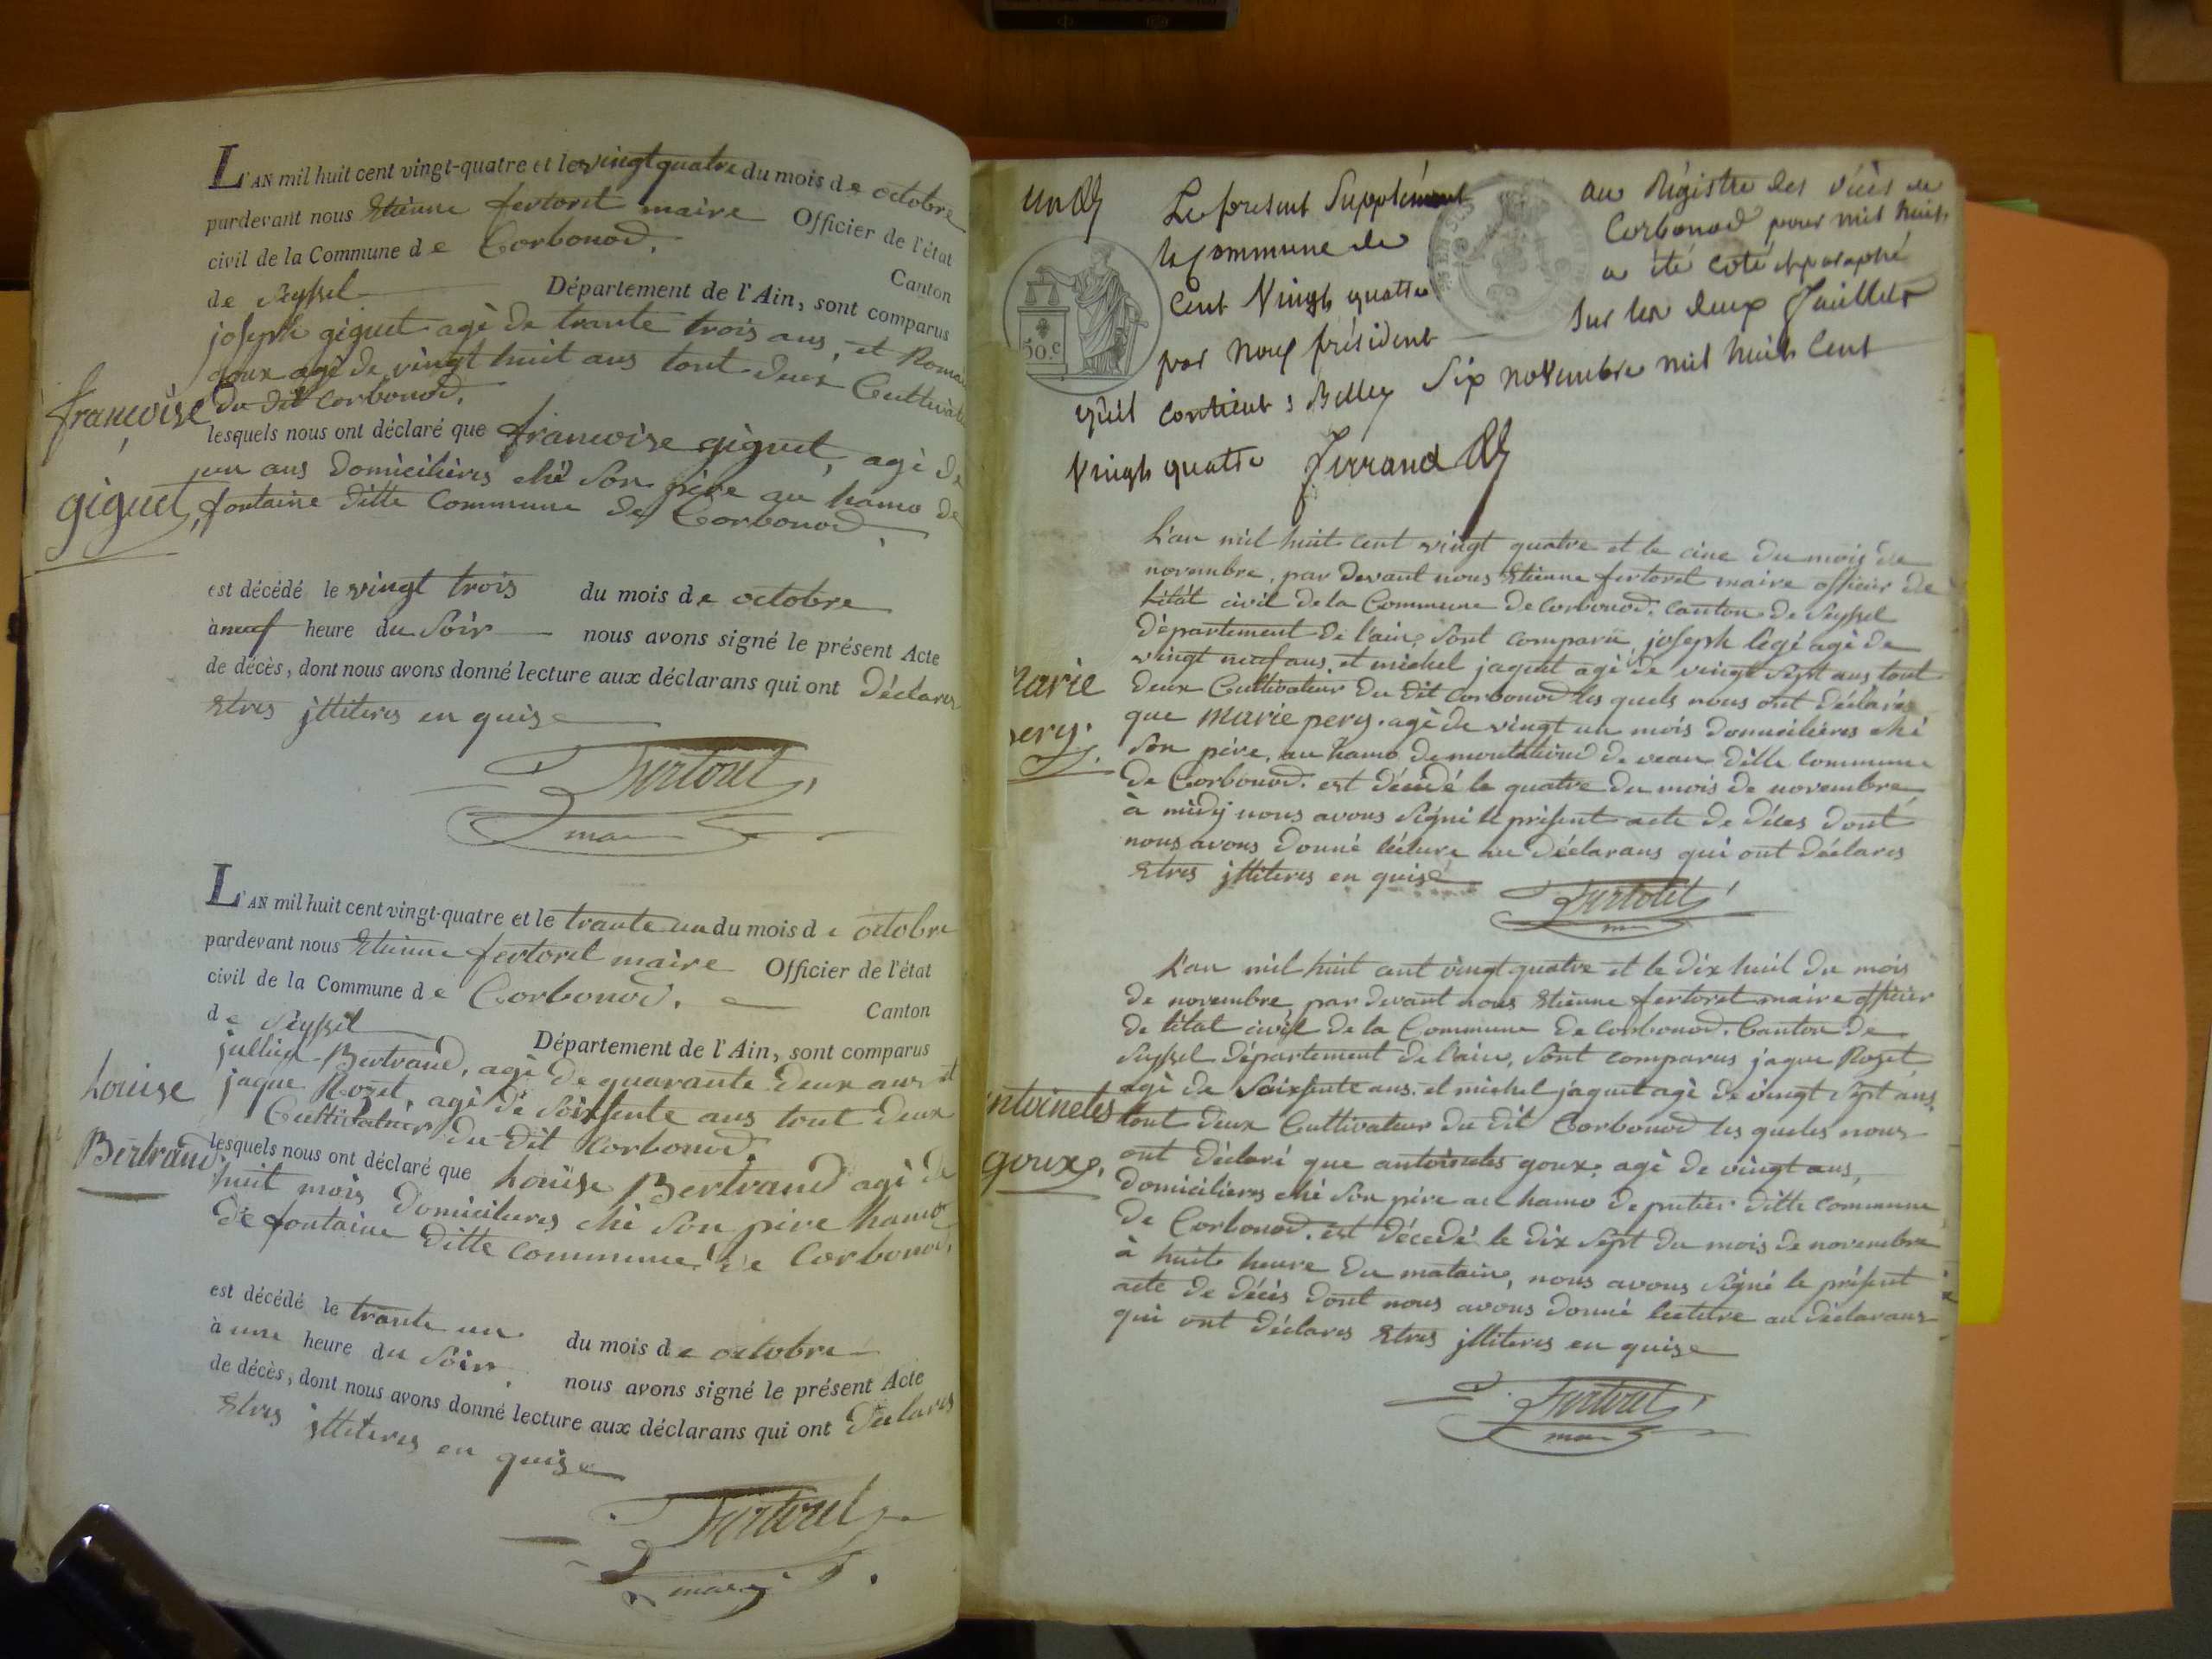 L'AN mil huit cent vingt-quatre et le vingt quatre du mois de octobre
pardevant nous Etienne fertoret maire Officier de l'état
civil de la Commune de Corbonod. Canton
de Seyssel Département de l'Ain, sont comparus
joseph giguet agé de trante trois ans, et Roma
goux agé de vingt huit ans tout deux Cultivat
du dit Corbonod.
lesquels nous ont déclaré que francoise giguet, agé de
un ans domicilières ché son père au hamo de
fontaine ditte Commune de Corbonod.
francoise
giguet
est décédé le vingt trois du mois de octobre
à neuf heure du Soir nous avons signé le présent Acte
de décès, dont nous avons donné lecture aux déclarans qui ont déclarer
Etres jlliteres en quise
Fertoret
L'AN mil huit cent vingt-quatre et le trante un du mois de octobre
pardevant nous Etienne fertoret maire Officier de l'état
civil de la Commune de Corbonod. Canton
de Seyssel Département de l'Ain, sont comparus
Bertrand, agé de quarante deux ans et
jaque Rozet, agé de Soixsente ans tout deux
Cultivateur du dit Corbonod.
lesquels nous ont déclaré que Louise Bertrand agé de
huit mois domicilieres ché son père hamo
de fontaine ditte commune de Corbonod,
Louise
Bertrand
est décédé le trante un du mois de octobre
à une heure du Soir, nous avons signé le présent Acte
de décès, dont nous avons donné lecture aux déclarans qui ont declares
Etres jlliteres en quise
Fertoret
Le present Supplément au Régistre des décès de
la Commune de Corbonod pour mil huit
Cent Vingt quatre a été coté et paraphé
par Nous président Sur les deux feuillets
qu'il contient à Belley Six novembre mil huit Cent
Vingt quatre Ferrand
50.c
L'an mil huit cent vingt quatre et le cinc du mois de
novembre, par devant nous Etienne fertoret maire officier de
l'état civil de la Commune de Corbonod. Canton de Seyssel
département de l'ain, sont comparu, joseph legé agé de
vingt neuf ans, et michel jaquet agé de vingt sept ans tout
deux Cultivateur du dit Corbonod les quels nous ont déclarés
que marie pery. agé de vingt un mois domicilières ché
son père, au hamo de de veau ditte commune
de Corbonod. est décédé le quatre du mois de novembre,
à midy nous avons Signé le présent acte de déces dont
nous avons donné lécture au déclarans qui ont déclares
Etres jlliteres en quise
arie
ery.
Fertoret
L'an mil huit cent vingt quatre et le dix huit du mois
de novembre, par devant nous Etienne fertoret maire officier
de l'état civil de la Commune de Corbonod. Canton de
Seyssel département de l'ain, sont comparus jaque Rozet
agé de Soixsente ans. et michel jaquet agé de vingt sept ans,
tout deux Cultivateur du dit Corbonod les queles nous
ont déclaré que antoinetes goux, agé de vingt ans,
domicilieres ché son père au hamo de ditte commune
de Corbonod. est décedé le dix sept du mois de novembre
à huite heure du matain, nous avons signé le présent
acte de décès dont nous avons donné lectetre au déclarans
qui ont déclares Etres jlliteres en quise
ntoinetes
goux,
Fertoret